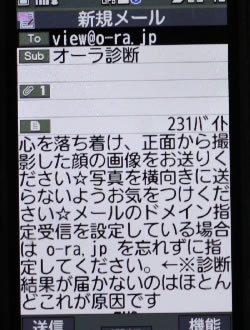 新規メール
To view@o-ra.jp
Sub オーラ診断
1
231ﾊﾞｲﾄ
心を落ち着け、正面から撮
影した顔の画像をお送りく
ださい☆写真を横向きに送
らないようお気をつけくだ
さい☆メールのドメイン指
定受信を設定している場合
は o-ra.jp を忘れずに指
定してください。←※診断
結果が届かないのはほとん
どこれが原因です
送信 機能